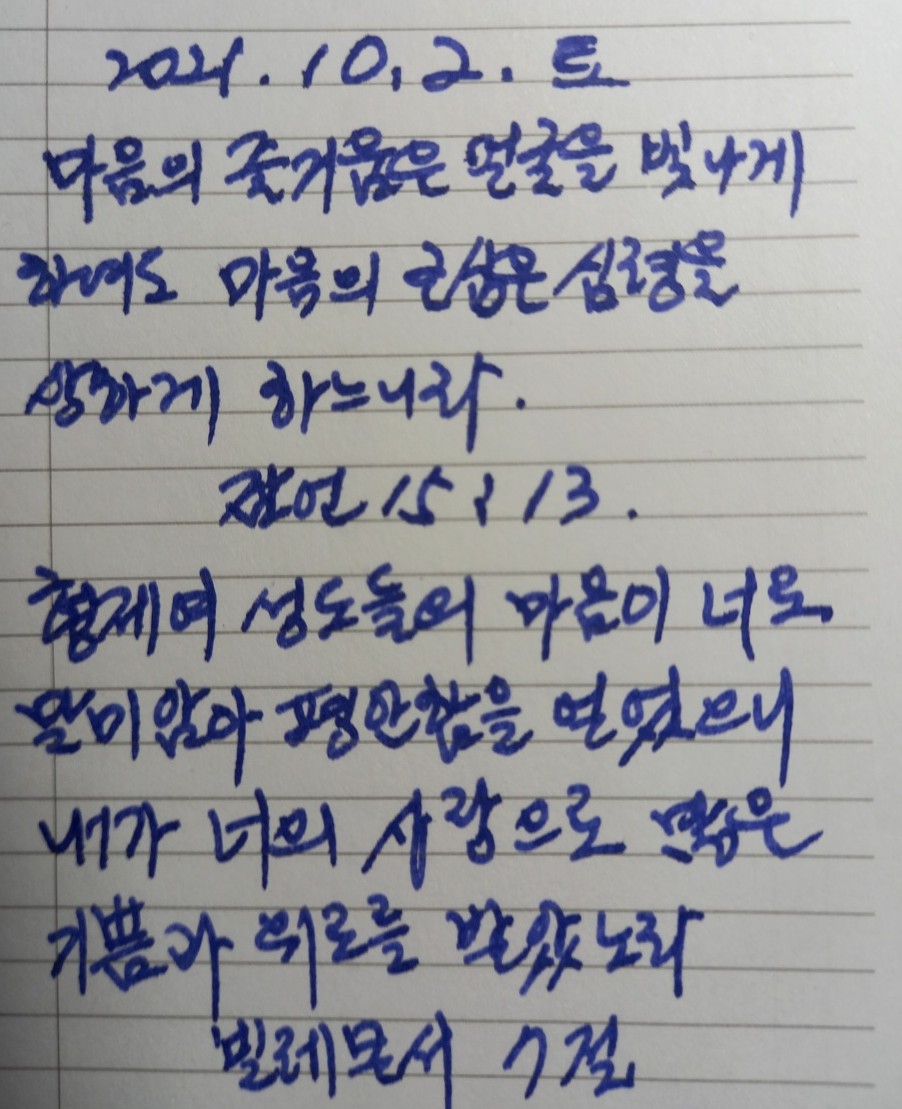 2021.10.2. 토
마음의 즐거움은 얼굴을 빛나게
하여도 마음의 근심은 심령을
상하게 하느니라.
잠언 15:13.
형제여 성도들의 마음이 너로
말미암아 평안함을 얻었으니
내가 너의 사랑으로 많은
기쁨과 위로를 받았노라
빌레몬서 7절